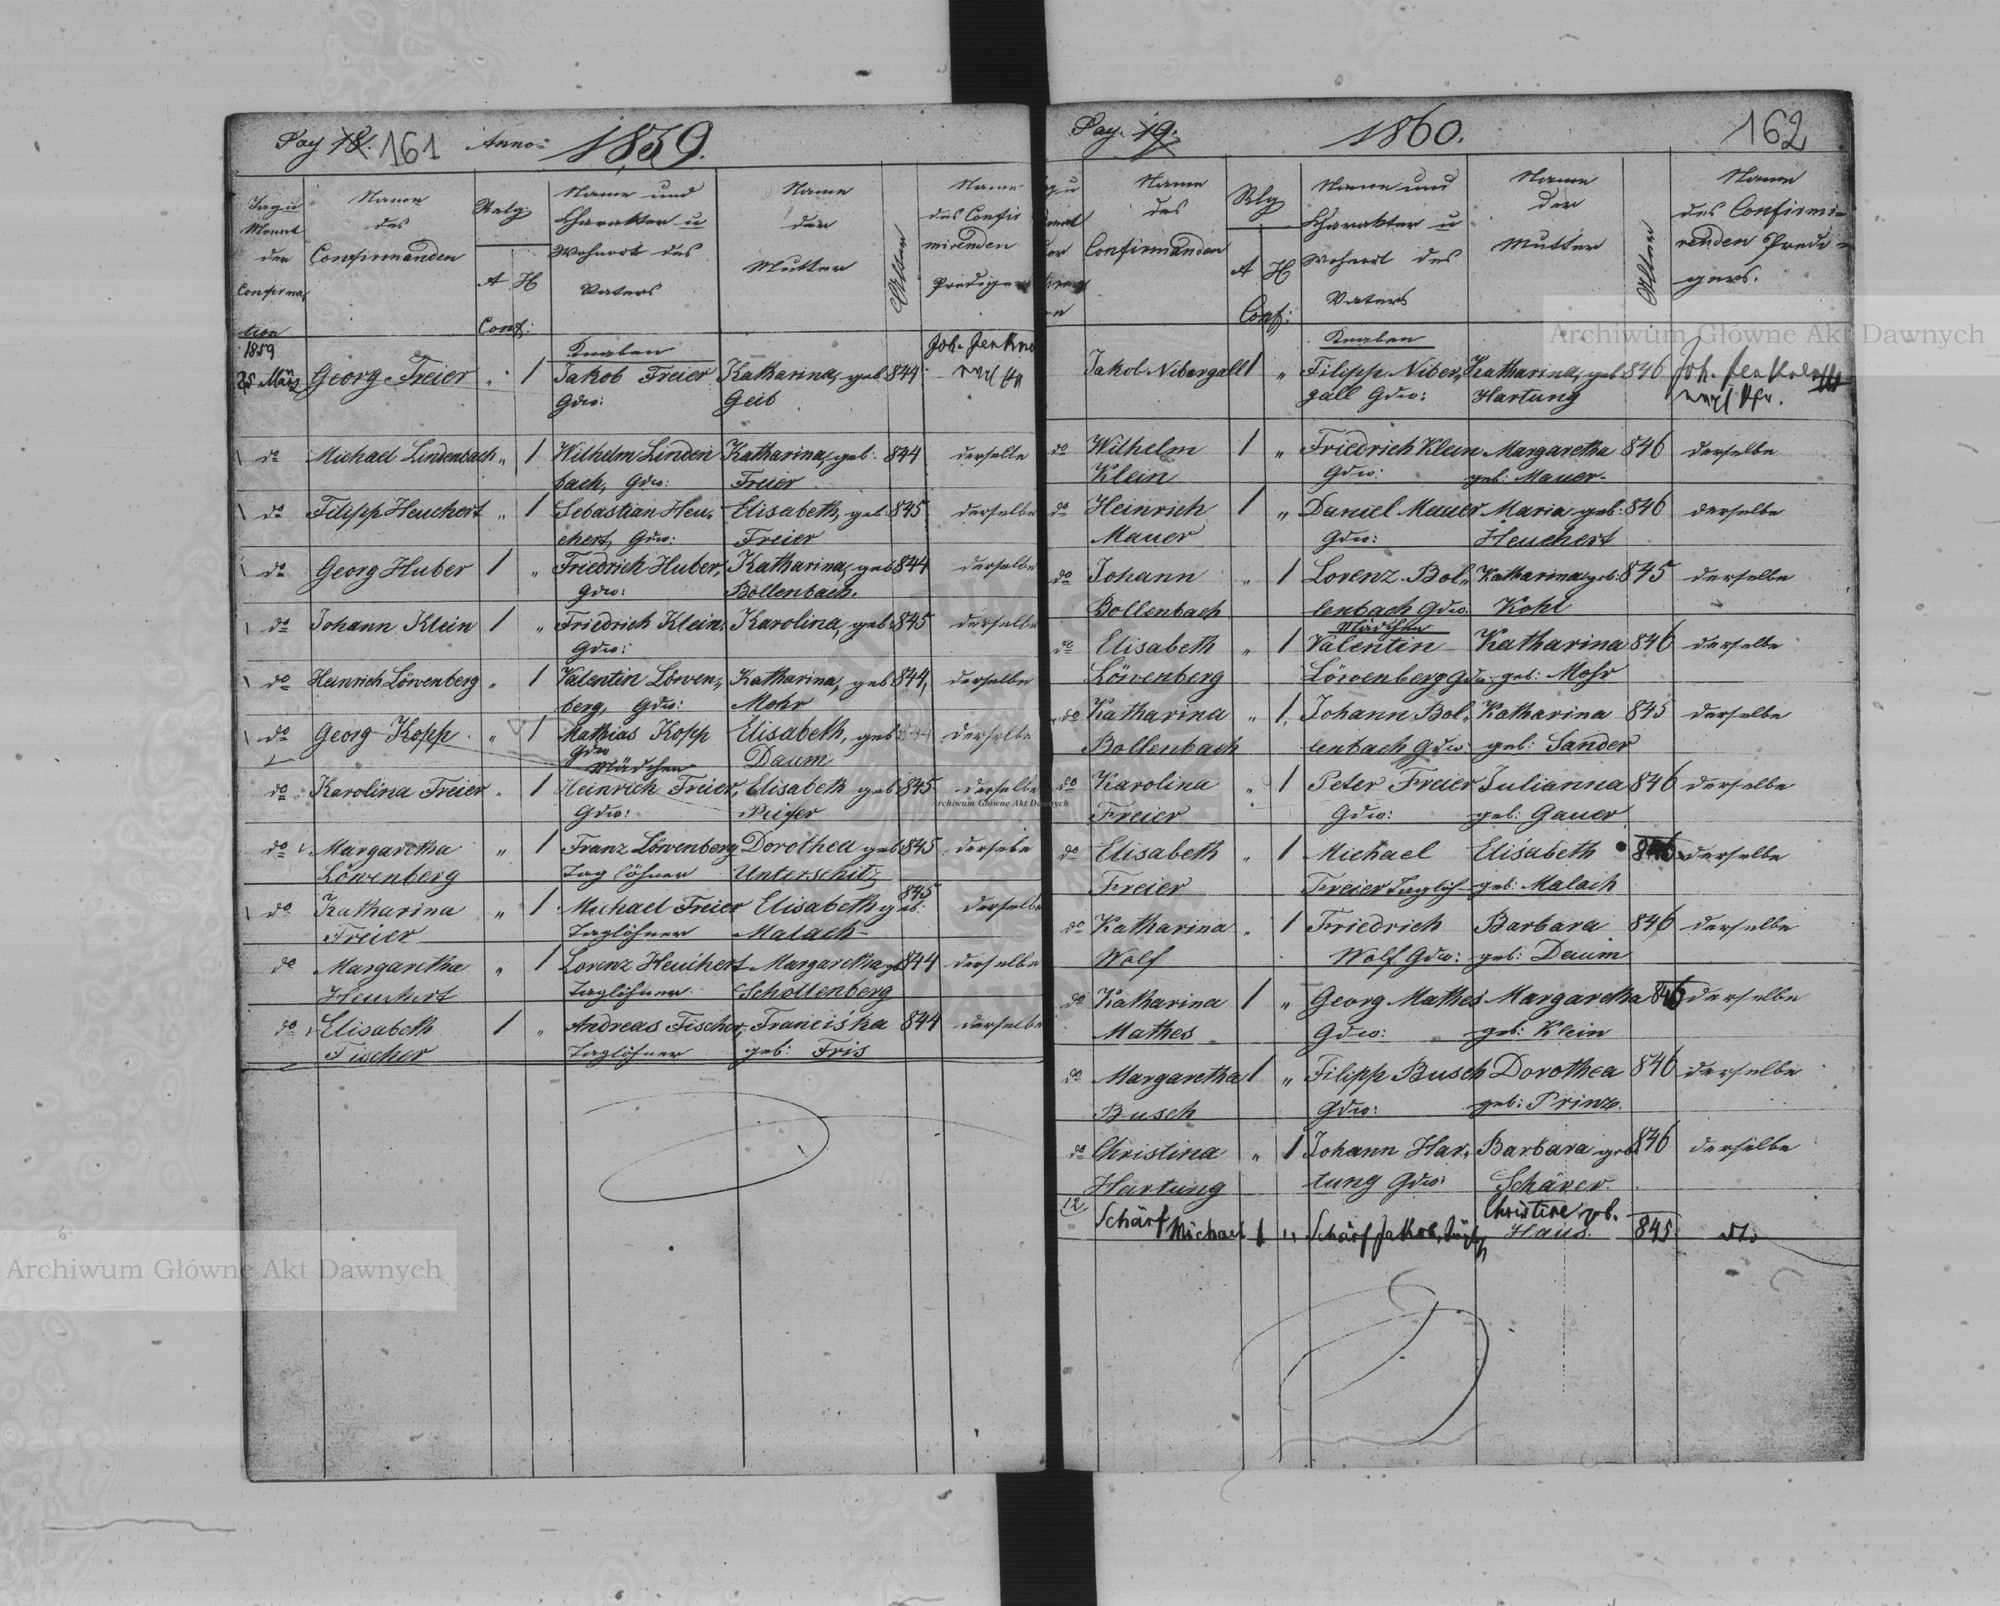 Pag 18. 161 Anno: 1859.
Tag u Monat der Confirmation
Name des Confirmanden
Relg: A H Conf:
Name und Charakter u Wohnort des Vaters
Name der Mutter
Alter
Name des Confirmirenden Predigers
Knaben
1859
25 März Georg Freier " 1 Jakob Freier Katharina, geb 844
Gdw: Geib
do Michael Lindenbach " 1 Wilhelm Linden Katharina, geb: 844 derselbe
bach, Gdw: Freier
do Filipp Heuchert " 1 Sebastian Heu, Elisabeth, geb 845 derselbe
chert, Gdw: Freier
do Georg Huber 1 " Friedrich Huber, Katharina, geb 844 derselbe
Gdw: Bollenbach.
do Johann Klein 1 " Friedrich Klein, Karolina, geb 845 derselbe
Gdw:
do Heinrich Löwenberg " 1 Valentin Löwen, Katharina, geb 844, derselbe
berg, Gdw: Mohr
do Georg Kopp " 1 Mathias Kopp Elisabeth, geb derselbe
Gdw Daum
Mädchen
do Karolina Freier " 1 Heinrich Freier, Elisabeth geb 845 derselbe
Gdw:
do Margaretha " 1 Franz Löwenberg Dorothea geb 845 derselbe
Löwenberg Taglöhner Unterschitz
do Katharina " 1 Michael Freier Elisabeth geb: 845 derselbe
Freier Taglöhner Malach
do Margaretha " 1 Lorenz Heuchert Margaretha gb 844 derselbe
Heuchert Taglöhner Schollenberg
do Elisabeth 1 " Andreas Fischer, Franciska 844 derselbe
Fischer Taglöhner geb: Fris
Pag. 19. 1860. 162
Name des Confirmanden
Rlg A H Conf:
Name und Charakter u Wohnort des Vaters
Name der Mutter
Alter
Name des Confirmirenden Predigers.
Knaben
Jakob Nibergall 1 " Filipp Niber, Katharina, geb 846
gall Gdw: Hartung
do Wilhelm 1 " Friedrich Klein Margaretha 846 derselbe
Klein Gdw: geb: Mauer
do Heinrich 1 " Daniel Mauer Maria geb: 846 derselbe
Mauer Gdw: Heuchert
do Johann " 1 Lorenz Bol, Katharina geb: 845 derselbe
Bollenbach lenbach Gdw. Kohl
Mädchen
do Elisabeth " 1 Valentin Katharina 846 derselbe
Löwenberg Löwenberg Gdw: geb: Mohr
do Katharina " 1 Johann Bol, Katharina 845 derselbe
Bollenbach lenbach Gdw: geb: Sander
do Karolina " 1 Peter Freier Julianna 846 derselbe
Freier Gdw: geb: Gauer
do Elisabeth " 1 Michael Elisabeth 846 derselbe
Freier Freier Taglöh geb: Malach
do Katharina " 1 Friedrich Barbara 846 derselbe
Wolf Wolf Gdw: geb: Daum
do Katharina 1 " Georg Mathes Margaretha 846 derselbe
Mathes Gdw: geb: Klein
do Margaretha 1 " Filipp Busch Dorothea 846 derselbe
Busch Gdw: geb: Prinz.
do Christina " 1 Johann Har, Barbara geb 846 derselbe
Hartung tung Gdw: Schärer.
12 Schärf Michael 1 " Schärf Jakob, Christine geb. Haus. 845 do
Archiwum Główne Akt Dawnych
Archiwum Główne Akt Dawnych
Archiwum Główne Akt Dawnych